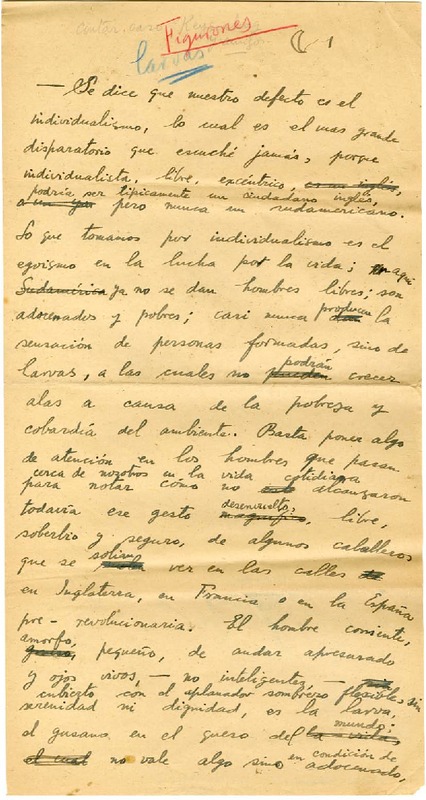 contar. caso Key
Figurones
larvas
1
— Se dice que nuestro defecto es el
individualismo, lo cual es el mas grande
disparatorio que escuché jamás, porque
individualista, libre, excéntrico, es un inglés,
podría ser típicamente un ciudadano inglés,
o un yan pero nunca un sudamericano.
Lo que tomamos por individualismo es el
egoismo en la lucha por la vida; aqui
Sudamérica ya no se dan hombres libres; son
adocenados y pobres; casi nunca producen
dan la
sensación de personas formadas, sino de
podrán
larvas, a las cuales no pueden crecer
alas a causa de la pobreza y
cobardía del ambiente. Basta poner algo
de atención en los hombres que pasan
cerca de nosotros en la vida cotidiana
para notar cómo no alcanzaron
desenvuelto,
todavía ese gesto magnífico, libre,
soberbio y seguro, de algunos caballeros
que se solían ver en las calles
en Inglaterra, en Francia o en la España
pre-revolucionaria. El hombre corriente,
amorfo,
pequeño, de andar apresurado
y ojos vivos, — no inteligentes —
cubierto con el aplanador sombrero flexible, sin
serenidad ni dignidad, es la larva:
mundo;
el gusano en el queso del la vida,
en condición de
el cual no vale algo sino adocenado,